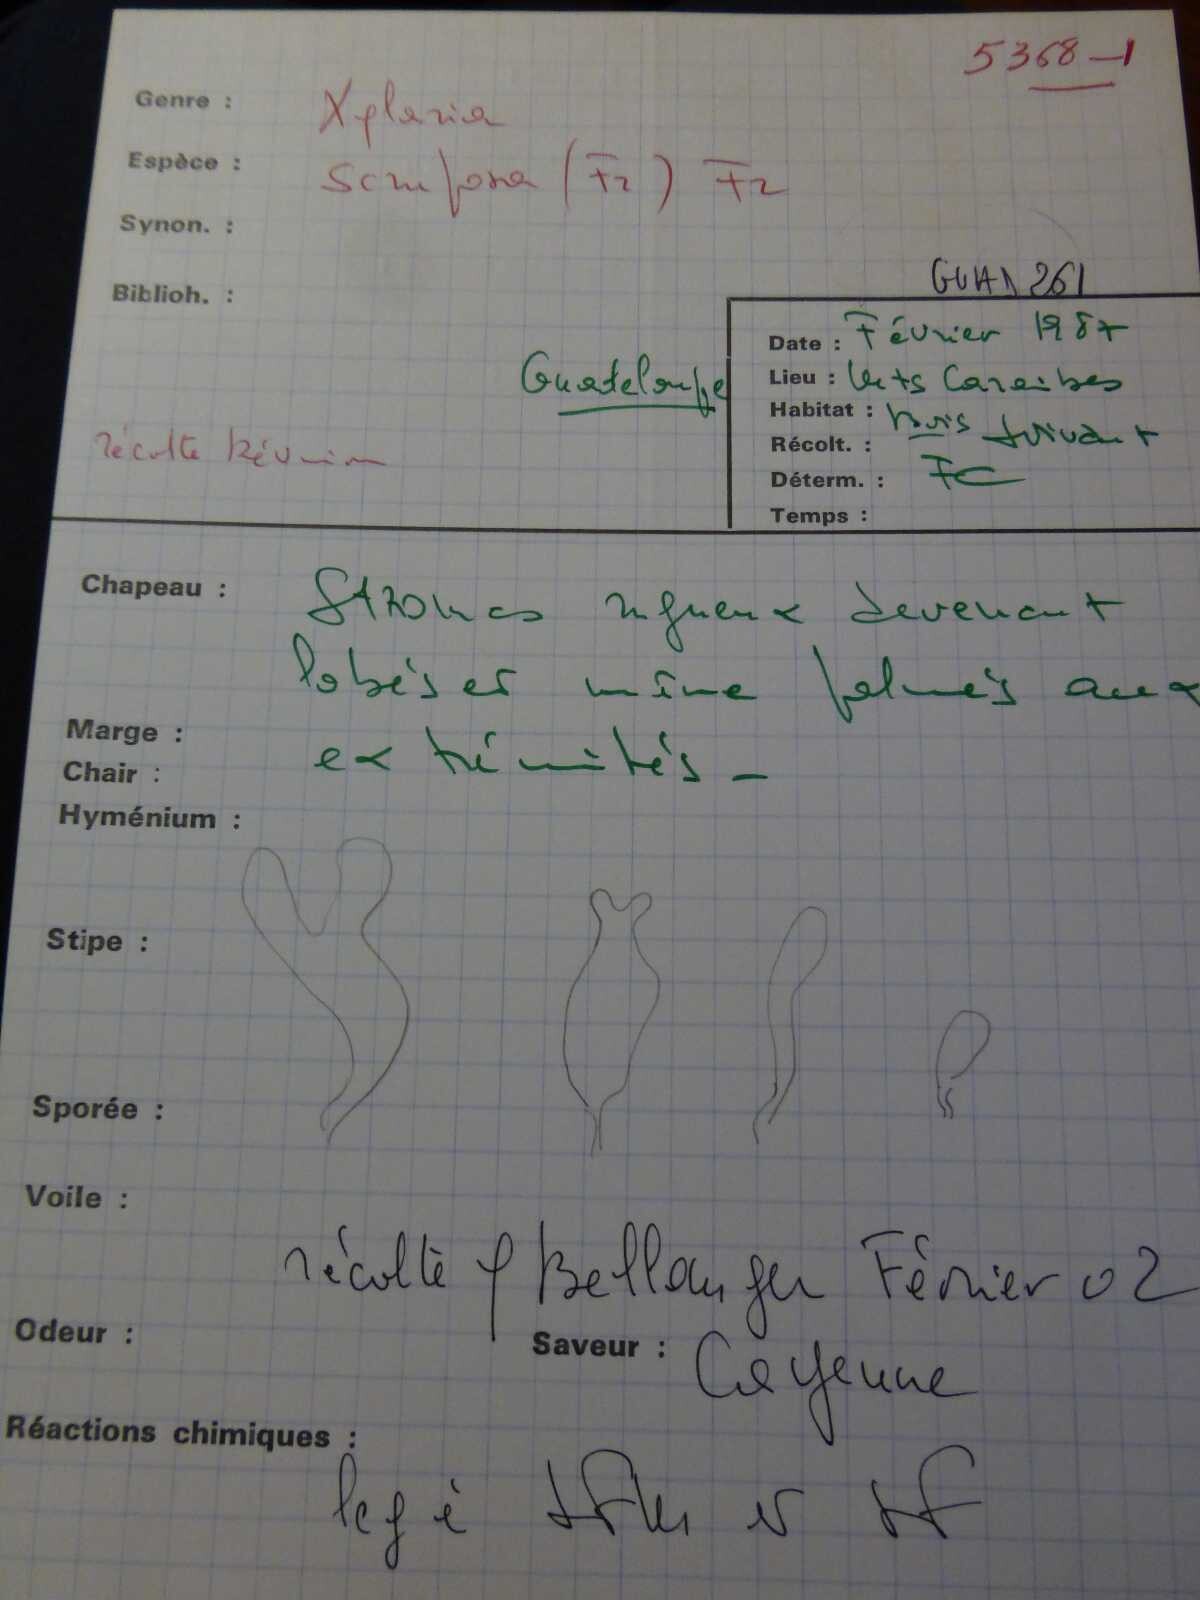 5368-1
Genre : Xylaria
Espèce : scruposa (Fr) Fr
Synon. :
Biblioh. :
GUAD 261
Date : Février 1987
Guadeloupe
Lieu : Caraibes
Habitat : Bois
récolte Réunion
Récolt. :
Déterm. : FC
Temps :
Chapeau : Stromas rugueux devenant
lobés et même palmés aux
Marge :
extrémités -
Chair :
Hyménium :
Stipe :
Sporée :
Voile :
récolté p Bellanger Février 02
Odeur :
Saveur : Cayenne
Réactions chimiques :
leg